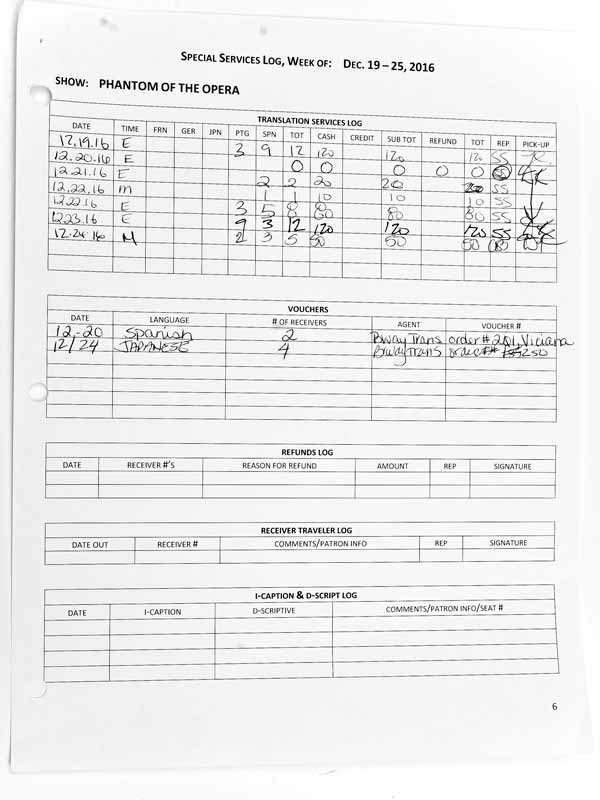 SPECIAL SERVICES LOG, WEEK OF: DEC. 19 – 25, 2016
SHOW: PHANTOM OF THE OPERA
TRANSLATION SERVICES LOG
DATE TIME FRN GER JPN PTG SPN TOT CASH CREDIT SUB TOT REFUND TOT REP PICK-UP
12.19.16 E 3 9 12 120 120 120 SS
12.20.16 E 0 0 0 0 0 SS
12.21.16 E 2 2 20 20 20 SS
12.22.16 m 1 1 10 10 10 SS
12.22.16 E 3 5 8 80 80 80 SS
12.23.16 E 9 3 12 120 120 120 SS
12.24.16 M 2 3 5 50 50 50
VOUCHERS
DATE LANGUAGE # OF RECEIVERS AGENT VOUCHER #
12-20 Spanish 2 Bway Trans order # 201, Viciana
12/24 JAPANESE 4 Bway Trans order # 250
REFUNDS LOG
DATE RECEIVER #'S REASON FOR REFUND AMOUNT REP SIGNATURE
RECEIVER TRAVELER LOG
DATE OUT RECEIVER # COMMENTS/PATRON INFO REP SIGNATURE
I-CAPTION & D-SCRIPT LOG
DATE I-CAPTION D-SCRIPTIVE COMMENTS/PATRON INFO/SEAT #
6